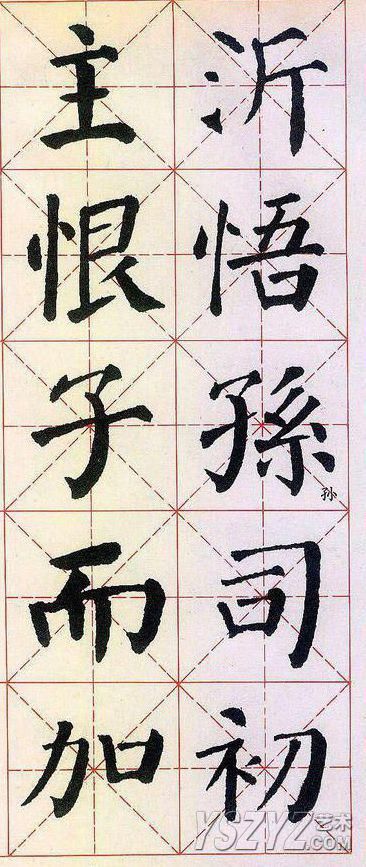 沂悟孫司初
孙
主恨子而加
YSZYZ艺术
.COM